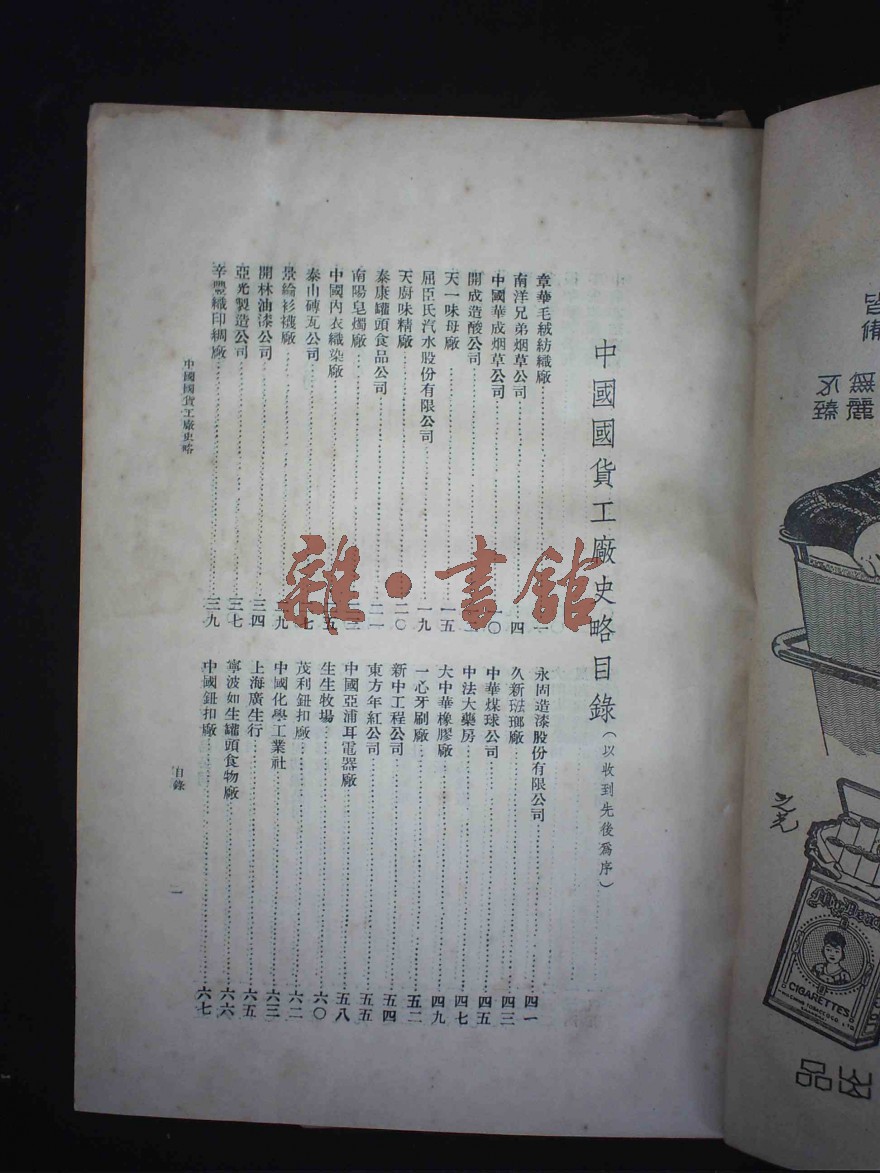 中國國貨工廠史略目錄（以收到先後爲序）
章華毛絨紡織廠 一
南洋兄弟烟草公司 四
中國華成烟草公司 〇
開成造酸公司
天一味母廠 一五
屈臣氏汽水股份有限公司 一九
天廚味精廠 二〇
泰康罐頭食品公司 二一
南陽皂燭廠
中國內衣織染廠 五
泰山磚瓦公司 七
景綸衫襪廠 九
開林油漆公司 三四
亞光製造公司 三七
辛豐織印綢廠 三九
永固造漆股份有限公司 四一
久新琺瑯廠 四三
中華煤球公司 四五
中法大藥房 四七
大中華橡膠廠 四九
一心牙刷廠 五二
新中工程公司 五四
東方年紅公司 五五
中國亞浦耳電器廠 五八
生生牧場 六〇
茂利鈕扣廠 六二
中國化學工業社 六三
上海廣生行 六五
寧波如生罐頭食物廠 六六
中國鈕扣廠 六七
中國國貨工廠史略
目錄
一
雜·書館
皆備
無麗
臻
CIGARETTES
品